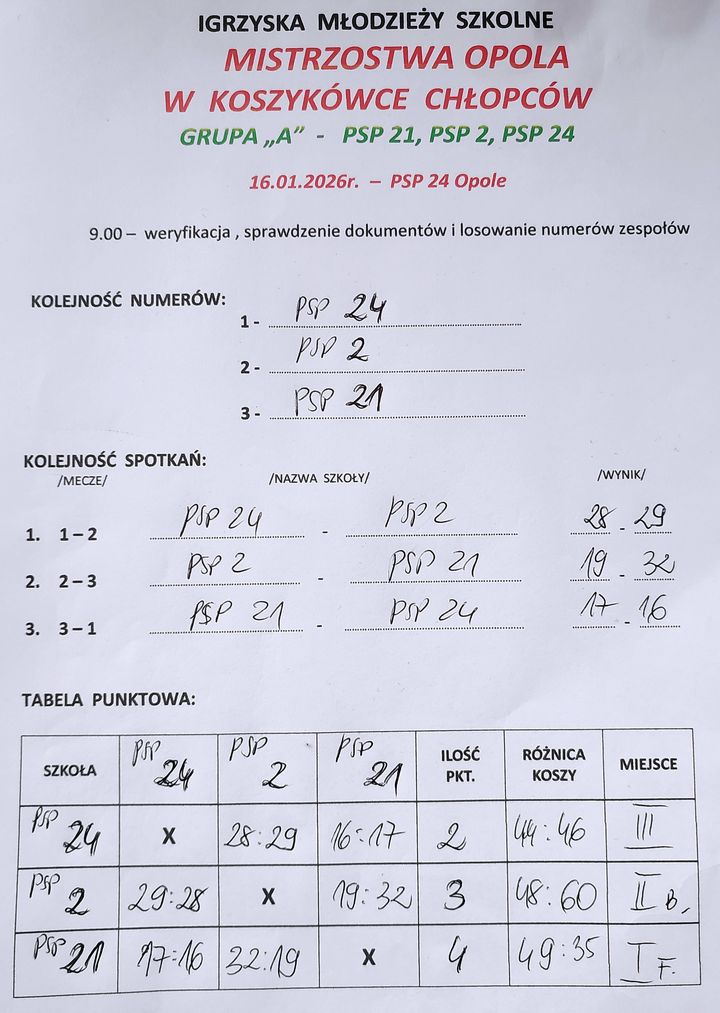 IGRZYSKA MŁODZIEŻY SZKOLNE
MISTRZOSTWA OPOLA
W KOSZYKÓWCE CHŁOPCÓW
GRUPA „A” - PSP 21, PSP 2, PSP 24
16.01.2026r. – PSP 24 Opole
9.00 – weryfikacja , sprawdzenie dokumentów i losowanie numerów zespołów
KOLEJNOŚĆ NUMERÓW:
1 - PSP 24
2 - PSP 2
3 - PSP 21
KOLEJNOŚĆ SPOTKAŃ:
/MECZE/ /NAZWA SZKOŁY/ /WYNIK/
1. 1 – 2 PSP 24 - PSP 2 28 - 29
2. 2 – 3 PSP 2 - PSP 21 19 - 32
3. 3 – 1 PSP 21 - PSP 24 17 - 16
TABELA PUNKTOWA:
SZKOŁA PSP 24 PSP 2 PSP 21 ILOŚĆ PKT. RÓŻNICA KOSZY MIEJSCE
PSP 24 X 28:29 16:17 2 44:46 III
PSP 2 29:28 X 19:32 3 48:60 II B.
PSP 21 17:16 32:19 X 4 49:35 I F.